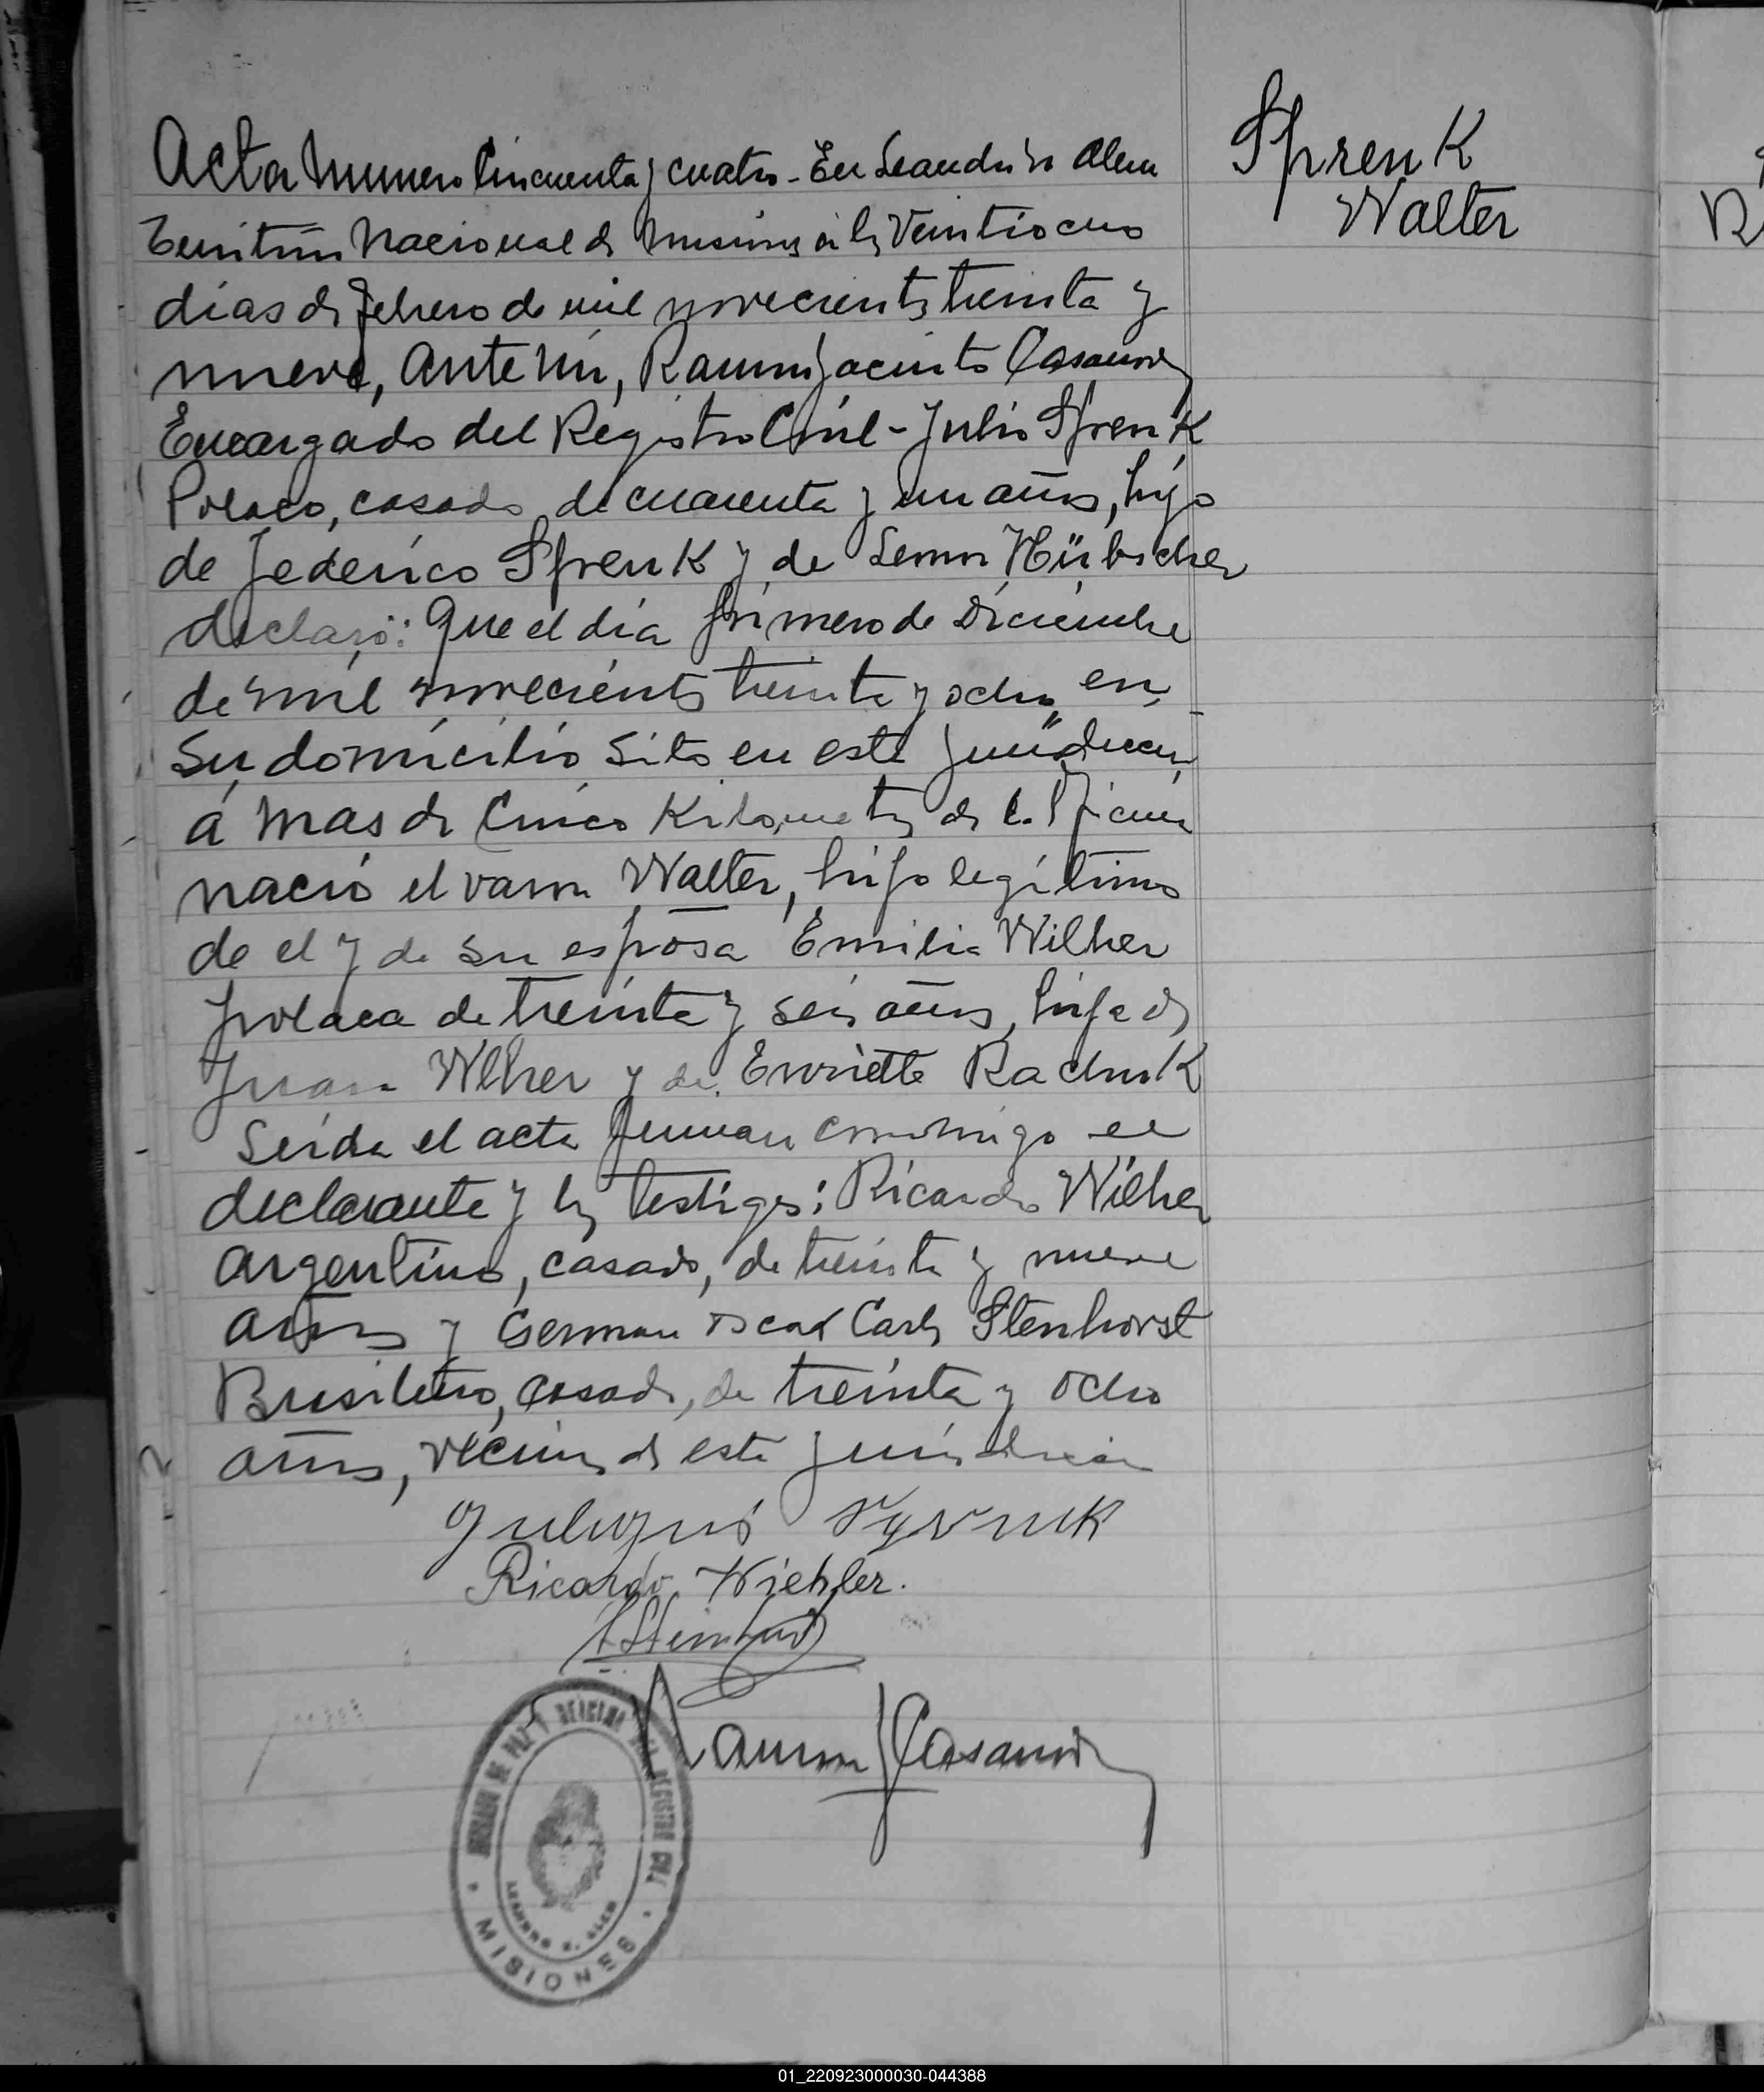 Sprenk
Walter
Acta Numero Cincuenta y cuatro - En Leandro N Alem
Territorio Nacional de Misiones a los Veintiocho
días de febrero de mil novecientos treinta y
nueve, Ante mi, Ramon Jacinto Casanova
Encargado del Registro Civil - Julio Sprenk
Polaco, casado, de cuarenta y un años, hijo
de Federico Sprenk y de Hübscher
declaró: Que el día primero de Diciembre
de mil novecientos treinta y ocho, en
su domicilio sito en este Jurisdiccion
á mas de Cinco Kilometros de la Oficina
nació el varon Walter, hijo legítimo
de el y de su esposa Emilia Wilher
polaca de treinta y seis años, hija de
Juan Wlher y de
Leida el acta firman conmigo el
declarante y los testigos: Ricardo Wilher
Argentino, casado, de treinta y nueve
años y German Oscar Carlos Stenhorst
Brasilero, casado, de treinta y ocho
años, vecinos de este jurisdiccion
Ricardo Wiehler.
Ramon J Casanova
JUZGADO DE PAZ Y OFICINA DEL REGISTRO CIVIL
LEANDRO N. ALEM
MISIONES
01_220923000030-044388